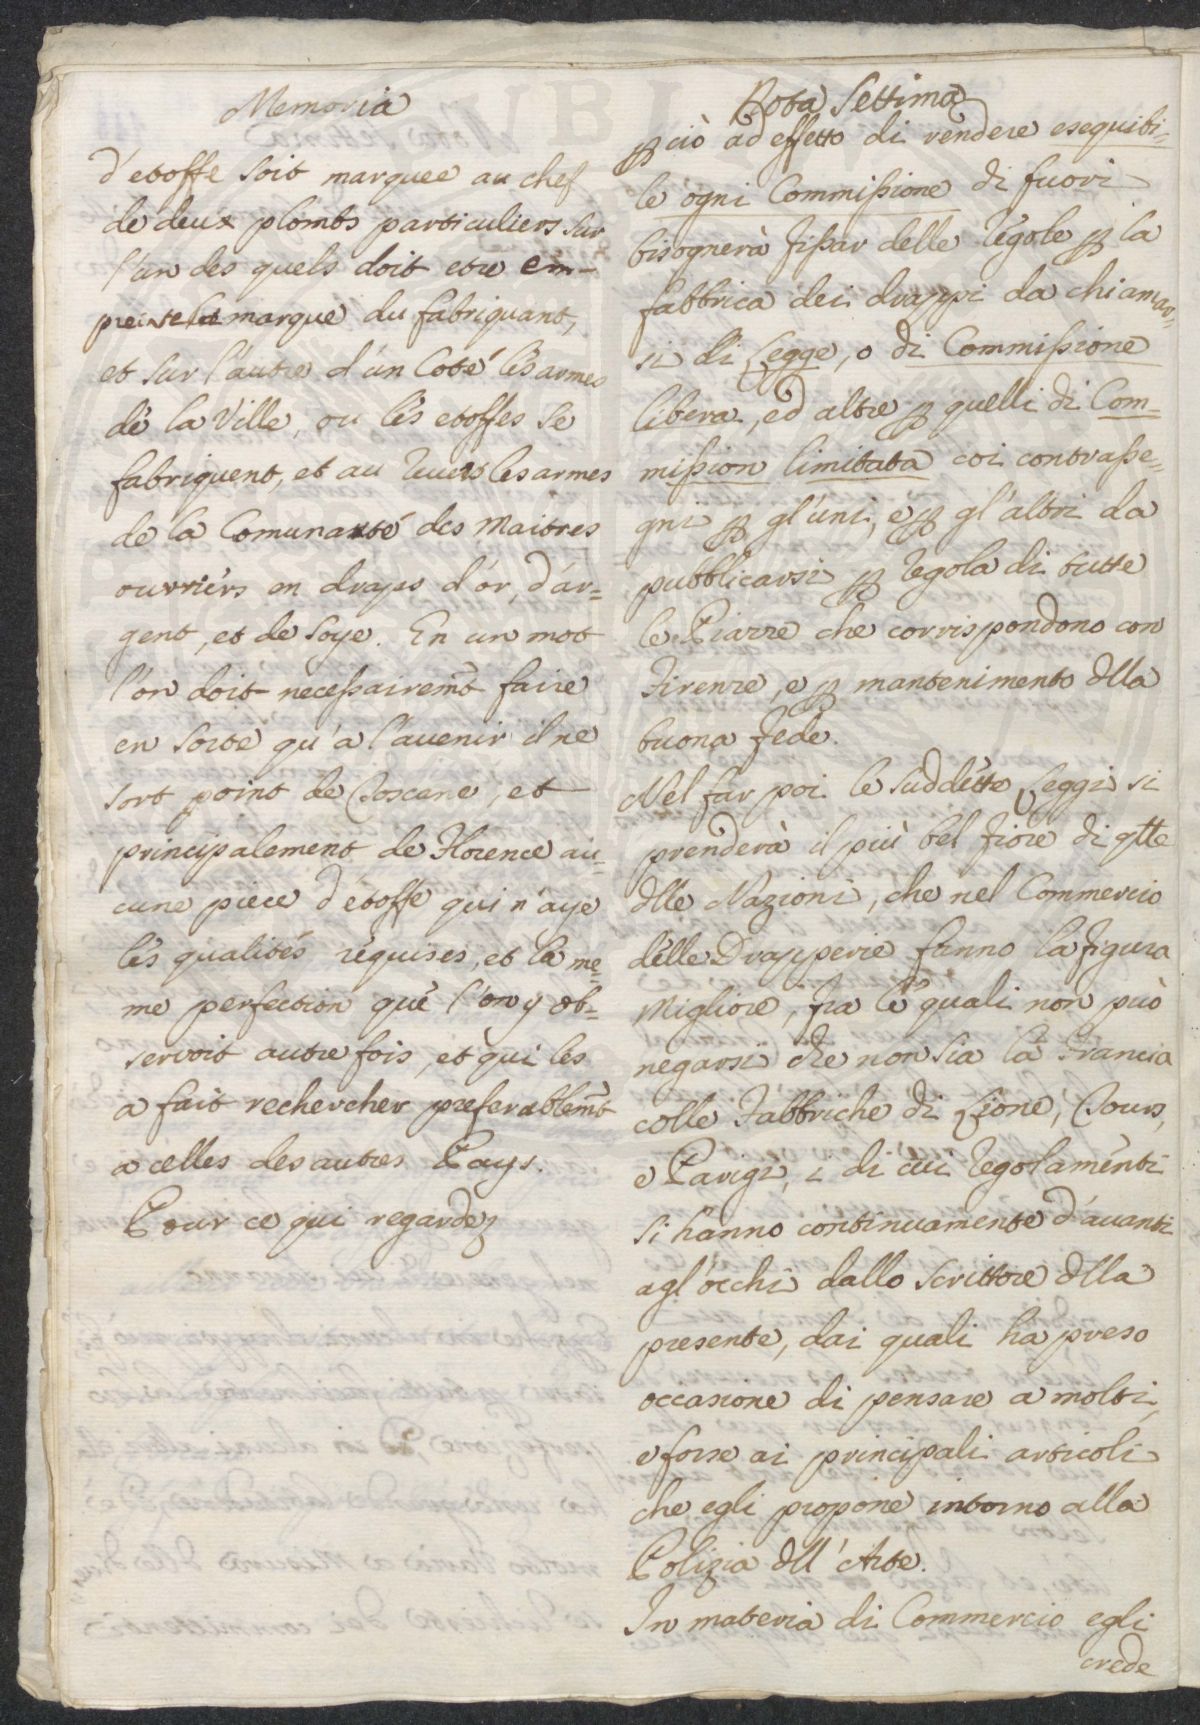 Memoria
d'etoffe soit marquee au chef
de deux plombs particuliers sur
l'un des quels doit etre em-
preinte la marque du fabriquant,
et sur l'autre d'un Coté les armes
de la Ville, ou les etoffes se
fabriquent, et au revers les armes
de la Comunauté des Maitres
ouvriérs en draps d'or, d'ar=
gent, et de Soye. En un mot
l'on doit necessairemt faire
en sorte qu'a l'avenir il ne
sort point de Toscane, et
principalement de Florence au=
cune piece d'étoffe qui n'aye
les qualités requises, et la me=
me perfection que l'on y ob=
servoit autre fois, et qui les
a fait rechercher preferablemt
a celles des autres Pays.
Pour ce qui regarde
Nota Settima
ꝑ ciò ad effetto di rendere esequibi=
le ogni Commissione di fuori
bisognerà fissar delle regole ꝑ la
fabbrica dei drappi da chiamar=
si di Legge, o di Commissione
libera, ed altre ꝑ quelli di Com=
mission limitata coi contrasse=
gni ꝑ gl'uni, e ꝑ gl'altri da
pubblicarsi ꝑ regola di tutte
le Piazze che corrispondono con
Firenze, e ꝑ mantenimento dlla
buona fede.
Nel far poi le suddette Leggi si
prenderà il più bel fiore di qtte
dlle Nazioni, che nel Commercio
delle Drapperie fanno la figura
Migliore, fra le quali non può
negarsi che non sia la Francia
colle Fabbriche di Lione, Tours,
e Parigi, i di cui regolamenti
si hanno continuamente d'avanti
agl'occhi dallo scrittore dlla
presente, dai quali ha preso
occasione di pensare a molti,
e forse ai principali articoli
che egli propone intorno alla
Polizia dll'Arte.
In materia di Commercio egli
crede